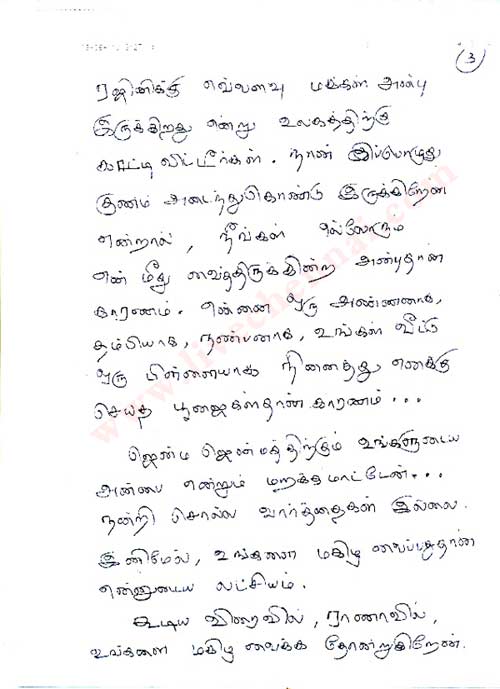 3
ரஜினிக்கு எவ்வளவு மக்கள் அன்பு
இருக்கிறது என்று உலகத்திற்கு
காட்டிவிட்டீர்கள். நான் இப்பொழுது
குணம் அடைந்துகொண்டு இருக்கிறேன்
என்றால், நீங்கள் எல்லோரும்
என் மீது வைத்திருக்கின்ற அன்புதான்
காரணம். என்னை ஒரு அண்ணனாக,
தம்பியாக, நண்பனாக, உங்கள் வீட்டு
ஒரு பிள்ளையாக நினைத்து எனக்கு
செய்த பூஜைகள்தான் காரணம்...
ஜென்ம ஜென்மத்திற்கும் உங்களுடைய
அன்பை என்றும் மறக்கமாட்டேன்...
நன்றி சொல்ல வார்த்தைகள் இல்லை.
இனிமேல், உங்களை மகிழ வைப்பதுதான்
என்னுடைய லட்சியம்.
கூடிய விரைவில், ராணாவில்,
உங்களை மகிழ வைக்க தோன்றுகிறேன்.
www.livechennai.com